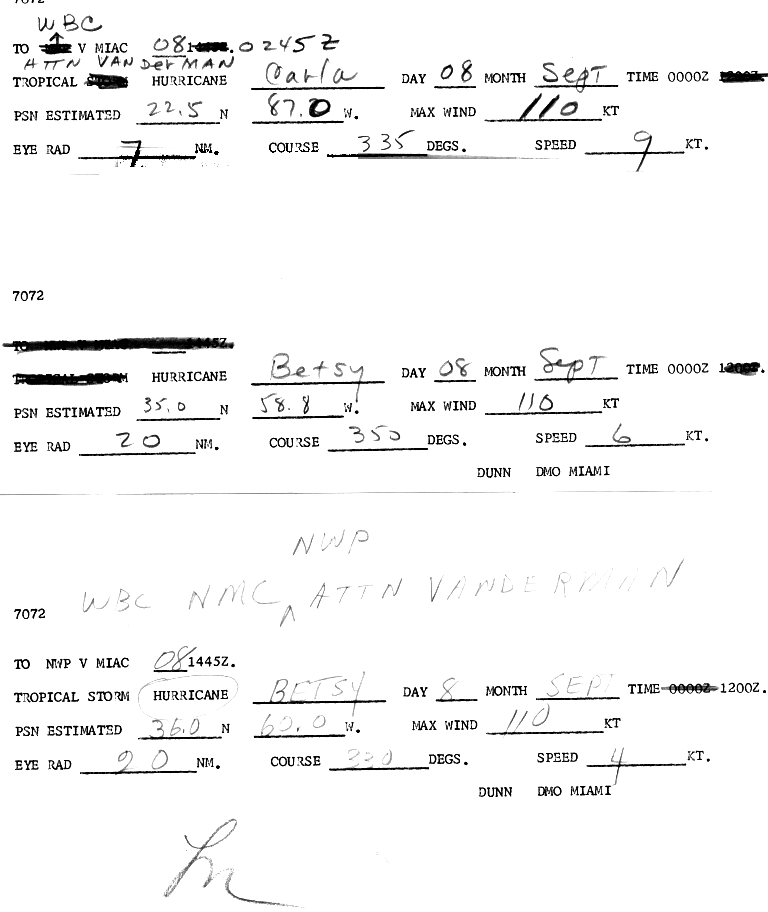 7072
WBC
TO V MIAC 08 . 0245Z
ATTN VANDerMAN
TROPICAL HURRICANE Carla DAY 08 MONTH Sept TIME 0000Z 1200Z.
PSN ESTIMATED 22.5 N 87.0 W. MAX WIND 110 KT
EYE RAD 7 NM. COURSE 335 DEGS. SPEED 9 KT.
7072
TO NWP V MIAC 1445Z.
TROPICAL STORM HURRICANE Betsy DAY 08 MONTH Sept TIME 0000Z
PSN ESTIMATED 35.0 N 58.8 W. MAX WIND 110 KT
EYE RAD 20 NM. COURSE 350 DEGS. SPEED 6 KT.
DUNN DMO MIAMI
NWP
WBC NMC ^ ATTN VANDERMAN
7072
TO NWP V MIAC 081445Z.
TROPICAL STORM HURRICANE BETSY DAY 8 MONTH SEPT TIME 0000Z 1200Z.
PSN ESTIMATED 36.0 N 60.0 W. MAX WIND 110 KT
EYE RAD 20 NM. COURSE 330 DEGS. SPEED 4 KT.
DUNN DMO MIAMI